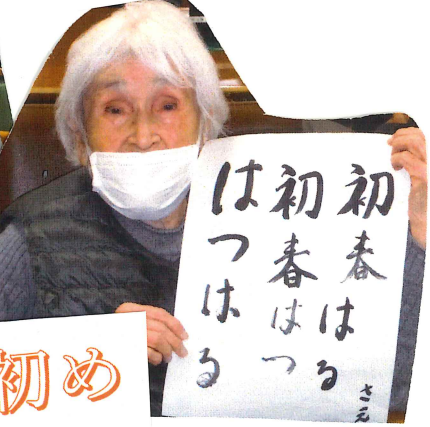 初春はる
初春はつ
はつはる
さえ
初め